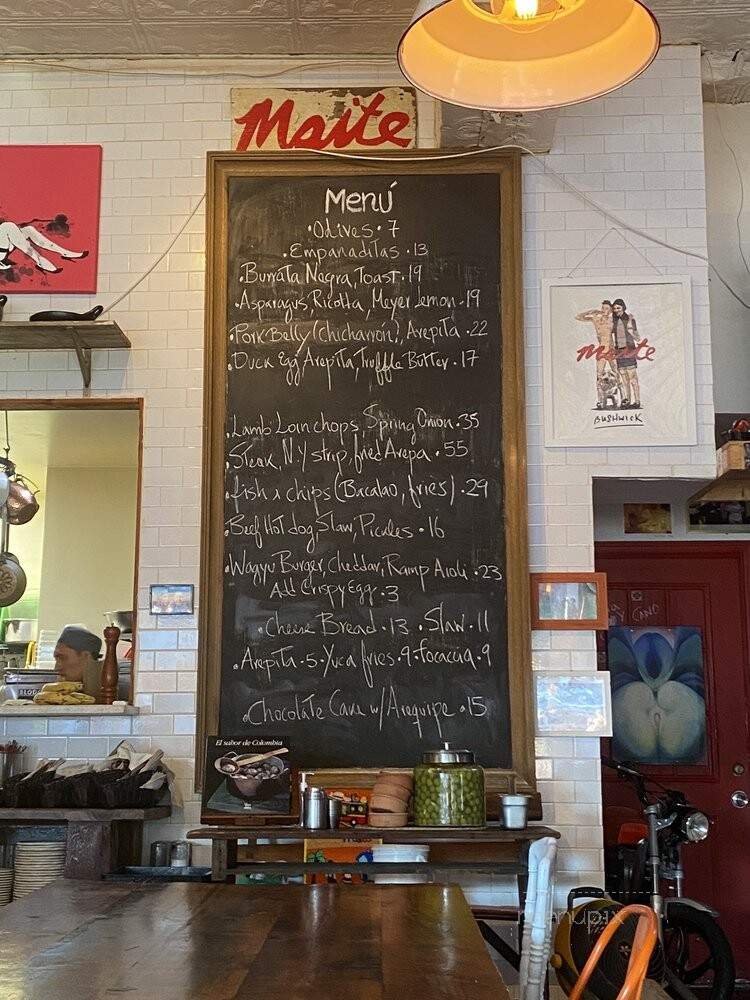 Maite
Menú
•Olives•7
•Empanaditas•13
•Burrata Negra, Toast•19
•Asparagus, Ricotta, Meyer Lemon•19
•Pork Belly (Chicharrón), Arepita•22
•Duck Egg Arepita, Truffle Butter•17
•Lamb Loin chops Spring Onion•35
•Steak, N.Y strip, fried Arepa•55
•fish & chips (Bacalao, fries)•29
•Beef Hot dog, Slaw, Pickles•16
•Wagyu Burger, Cheddar, Ramp Aioli•23
Add Crispy Egg•3
•Cheese Bread•13 •Slaw•11
•Arepita•5•Yuca fries•9•Focaccia•9
•Chocolate Cake w/ Arequipe•15
Maite
BUSHWICK
El sabor de Colombia
menupix